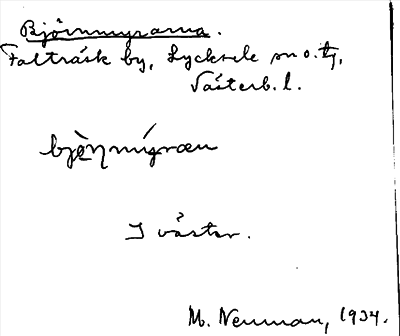 Björnmyrarna.
Falträsk by, Lycksele sn o. tg,
Västerb. l.
bjö̀ŋmýræn
I väster.
M. Neuman, 1934.